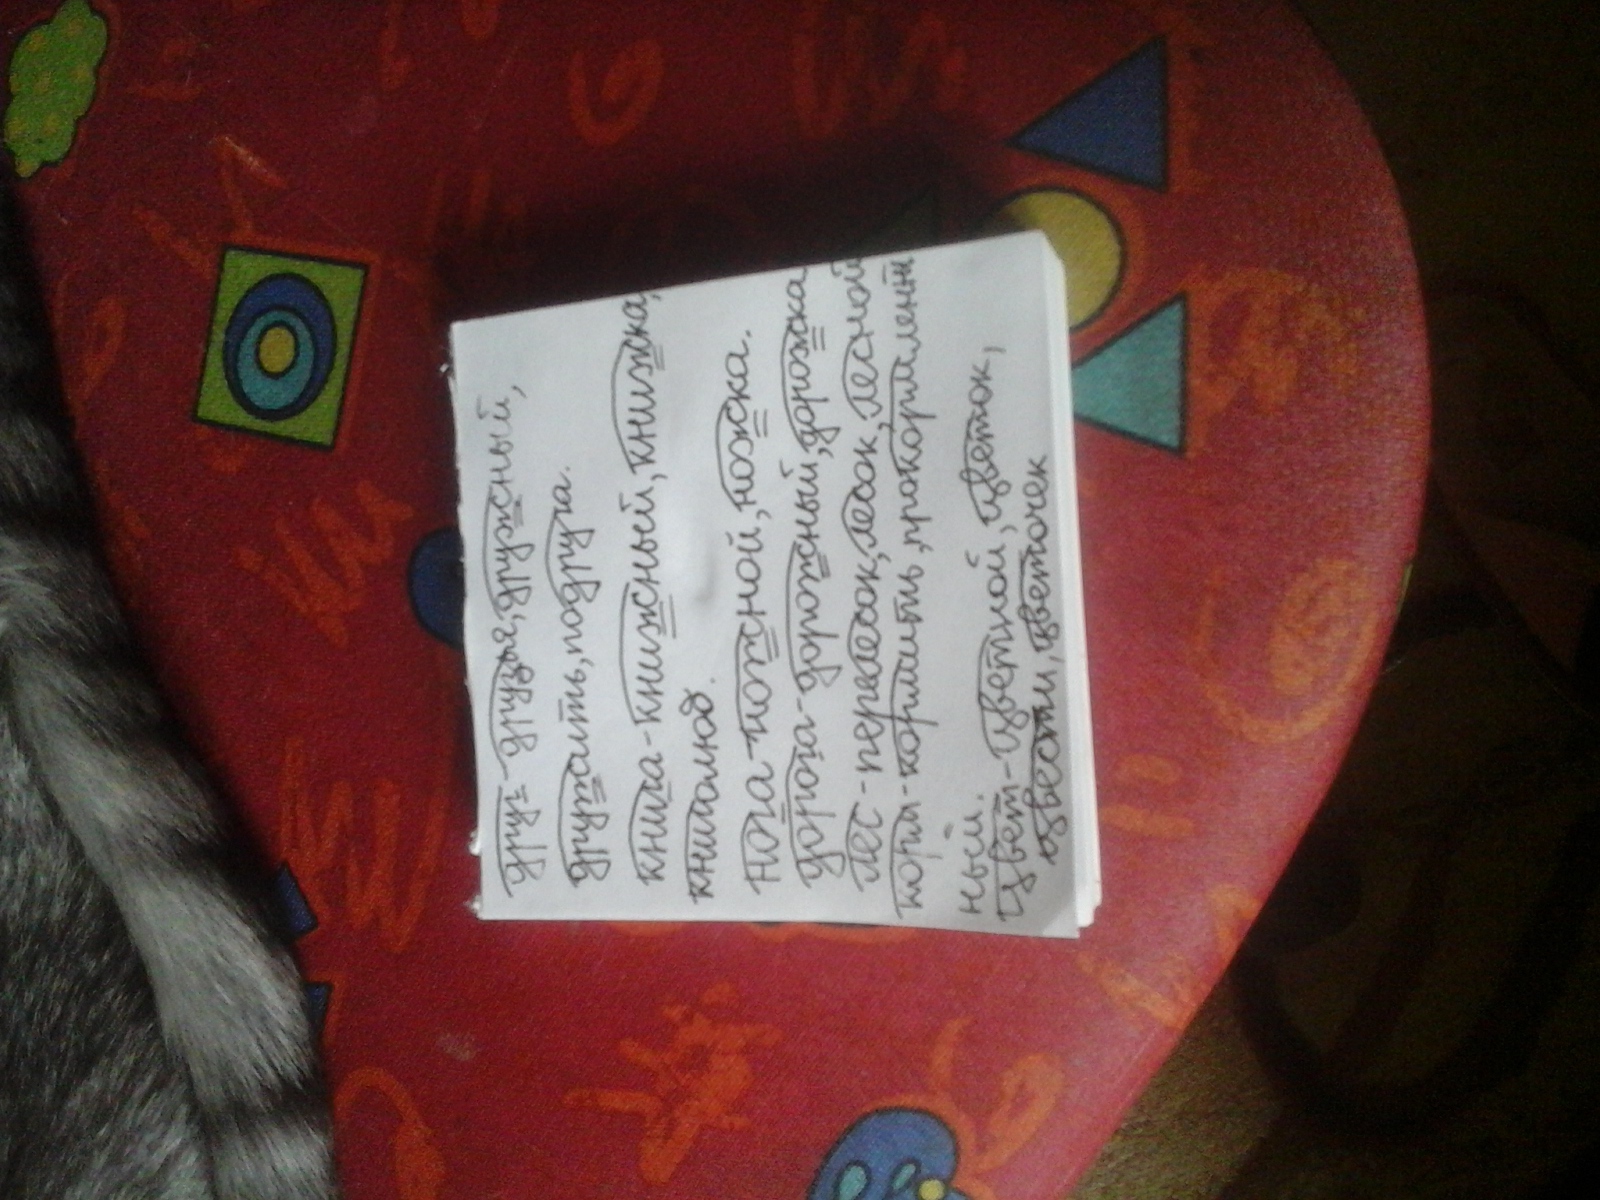 друг - друзья, дружный,
дружить, подруга.
книга - книжный, книжка,
книголюб.
нога - ножной, ножка.
дорога - дорожный, дорожка
лес - перелесок, лесок, лесной
корм - кормить, прокормленн
ный.
Цвет - цветной, цветок,
цвести, цветочек